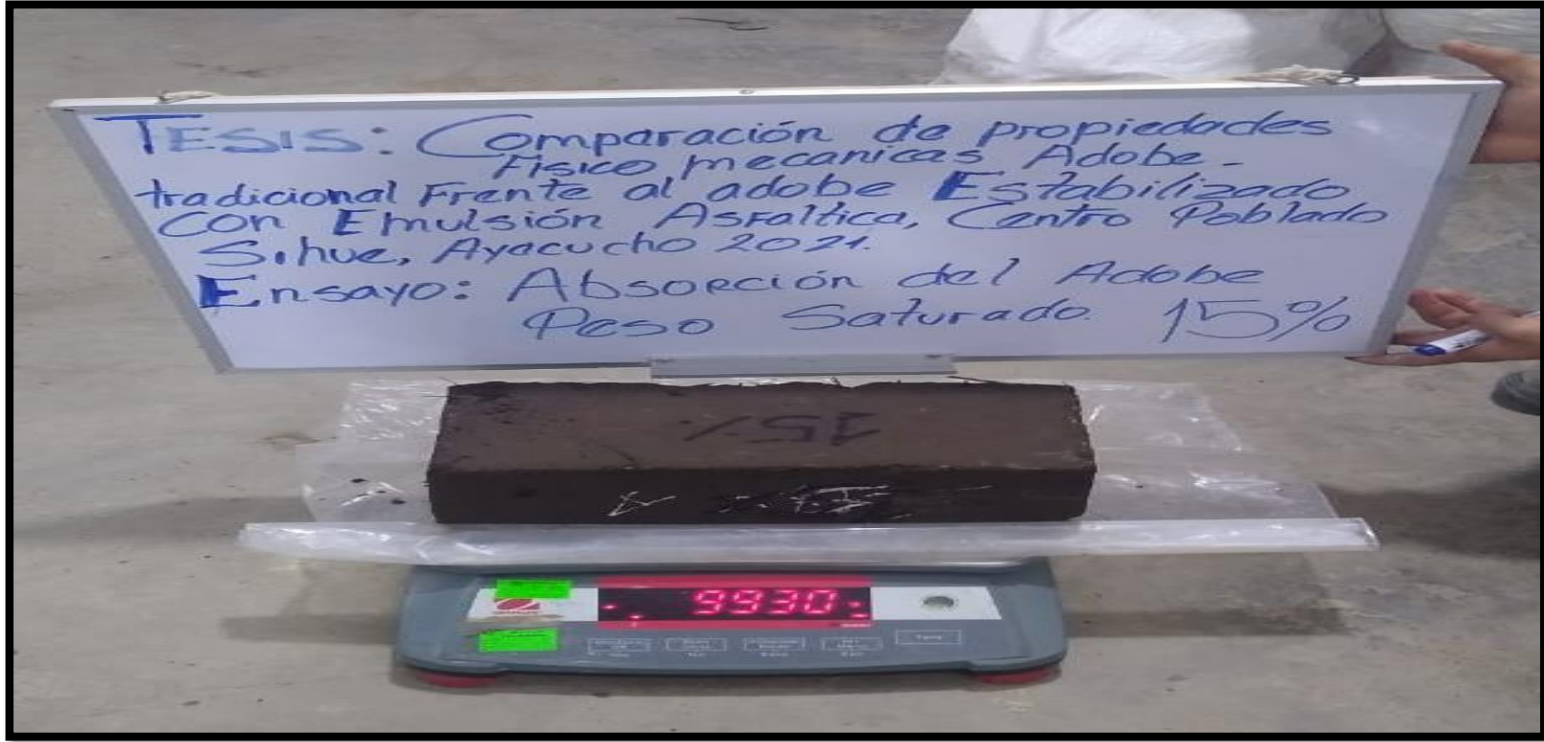 TESIS: Comparación de propiedades
Fisico mecanicas Adobe -
tradicional Frente al adobe Estabilizado
con Emulsión Asfaltica, Centro Poblado
Sihue, Ayacucho 2021.
Ensayo: Absorción del Adobe
Peso Saturado. 15%
15%
9930
Tare